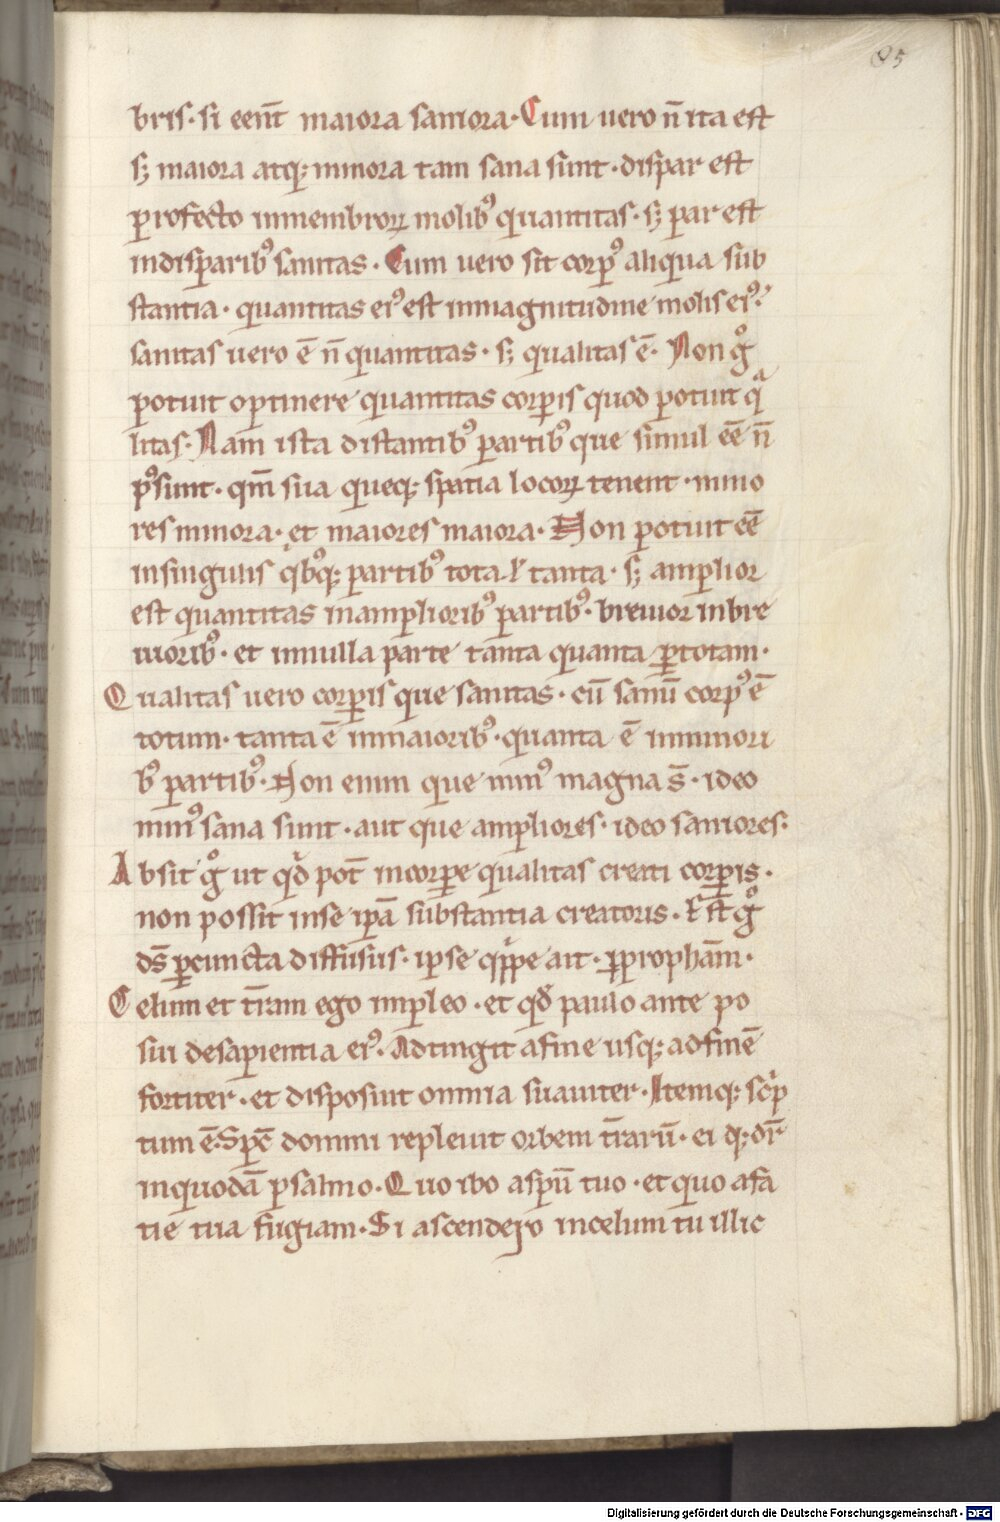 85
bris · si eēnt maiora saniora · Cum uero n̄ ita est
sꝫ maiora atqꝫ minora tam sana sunt · dispar est
ꝓfecto inmembroꝝ molibꝰ quantitas · sꝫ par est
indisparibꝰ sanitas · Cum uero sit corpꝰ aliqua sub
stantia · quantitas eiꝰ est inmagnitudine molis eiꝰ ·
sanitas uero ē n̄ quantitas · sꝫ qualitas ē · Non gͦ
potuit optinere quantitas corꝑis quod potuit qͣ
litas · Nam ista distantibꝰ partibꝰ que simul eē n̄
pꝰsunt · qm̄ sua queqꝫ spatia locoꝝ tenent · mino
res minora · et maiores maiora · Non potuit eē
insingulis qͥbꝰqꝫ partibꝰ tota ł tanta · sꝫ amplior
est quantitas inamplioribꝰ partibꝰ · breuior inbre
uioribꝰ · et innulla parte tanta quanta ꝑtotam ·
Qualitas uero corꝑis que sanitas · cū sanū corpꝰ ē
totum · tanta ē inmaioribꝰ · quanta ē inminori
bꝰ partibꝰ · Non enim que minꝰ magna s̄ · ideo
minꝰ sana sunt · aut que ampliores · ideo saniores ·
Absit gͦ ut qd̓ pot̄ incorꝑe qualitas creati corꝑis ·
non possit inse ip̄a substantia creatoris · Est gͦ
ds̄ ꝑcuncta diffusus · ipse qͥppe ait · ꝑprophām ·
Celum et t̄ram ego impleo · et qd̓ paulo ante po
sui desapientia eiꝰ · Adtingit afine usqꝫ adfinē
fortiter · et disposuit omnia suauiter · Itemqꝫ scͥp
tum ē · Spc̄ domini repleuit orbem t̄rarū · ei qꝫ dr̄
inquodā psalmo · Quo ibo aspū tuo · et quo afa
tie tua fugiam · Si ascendero incelum tu illic
Digitalisierung gefördert durch die Deutsche Forschungsgemeinschaft - DFG